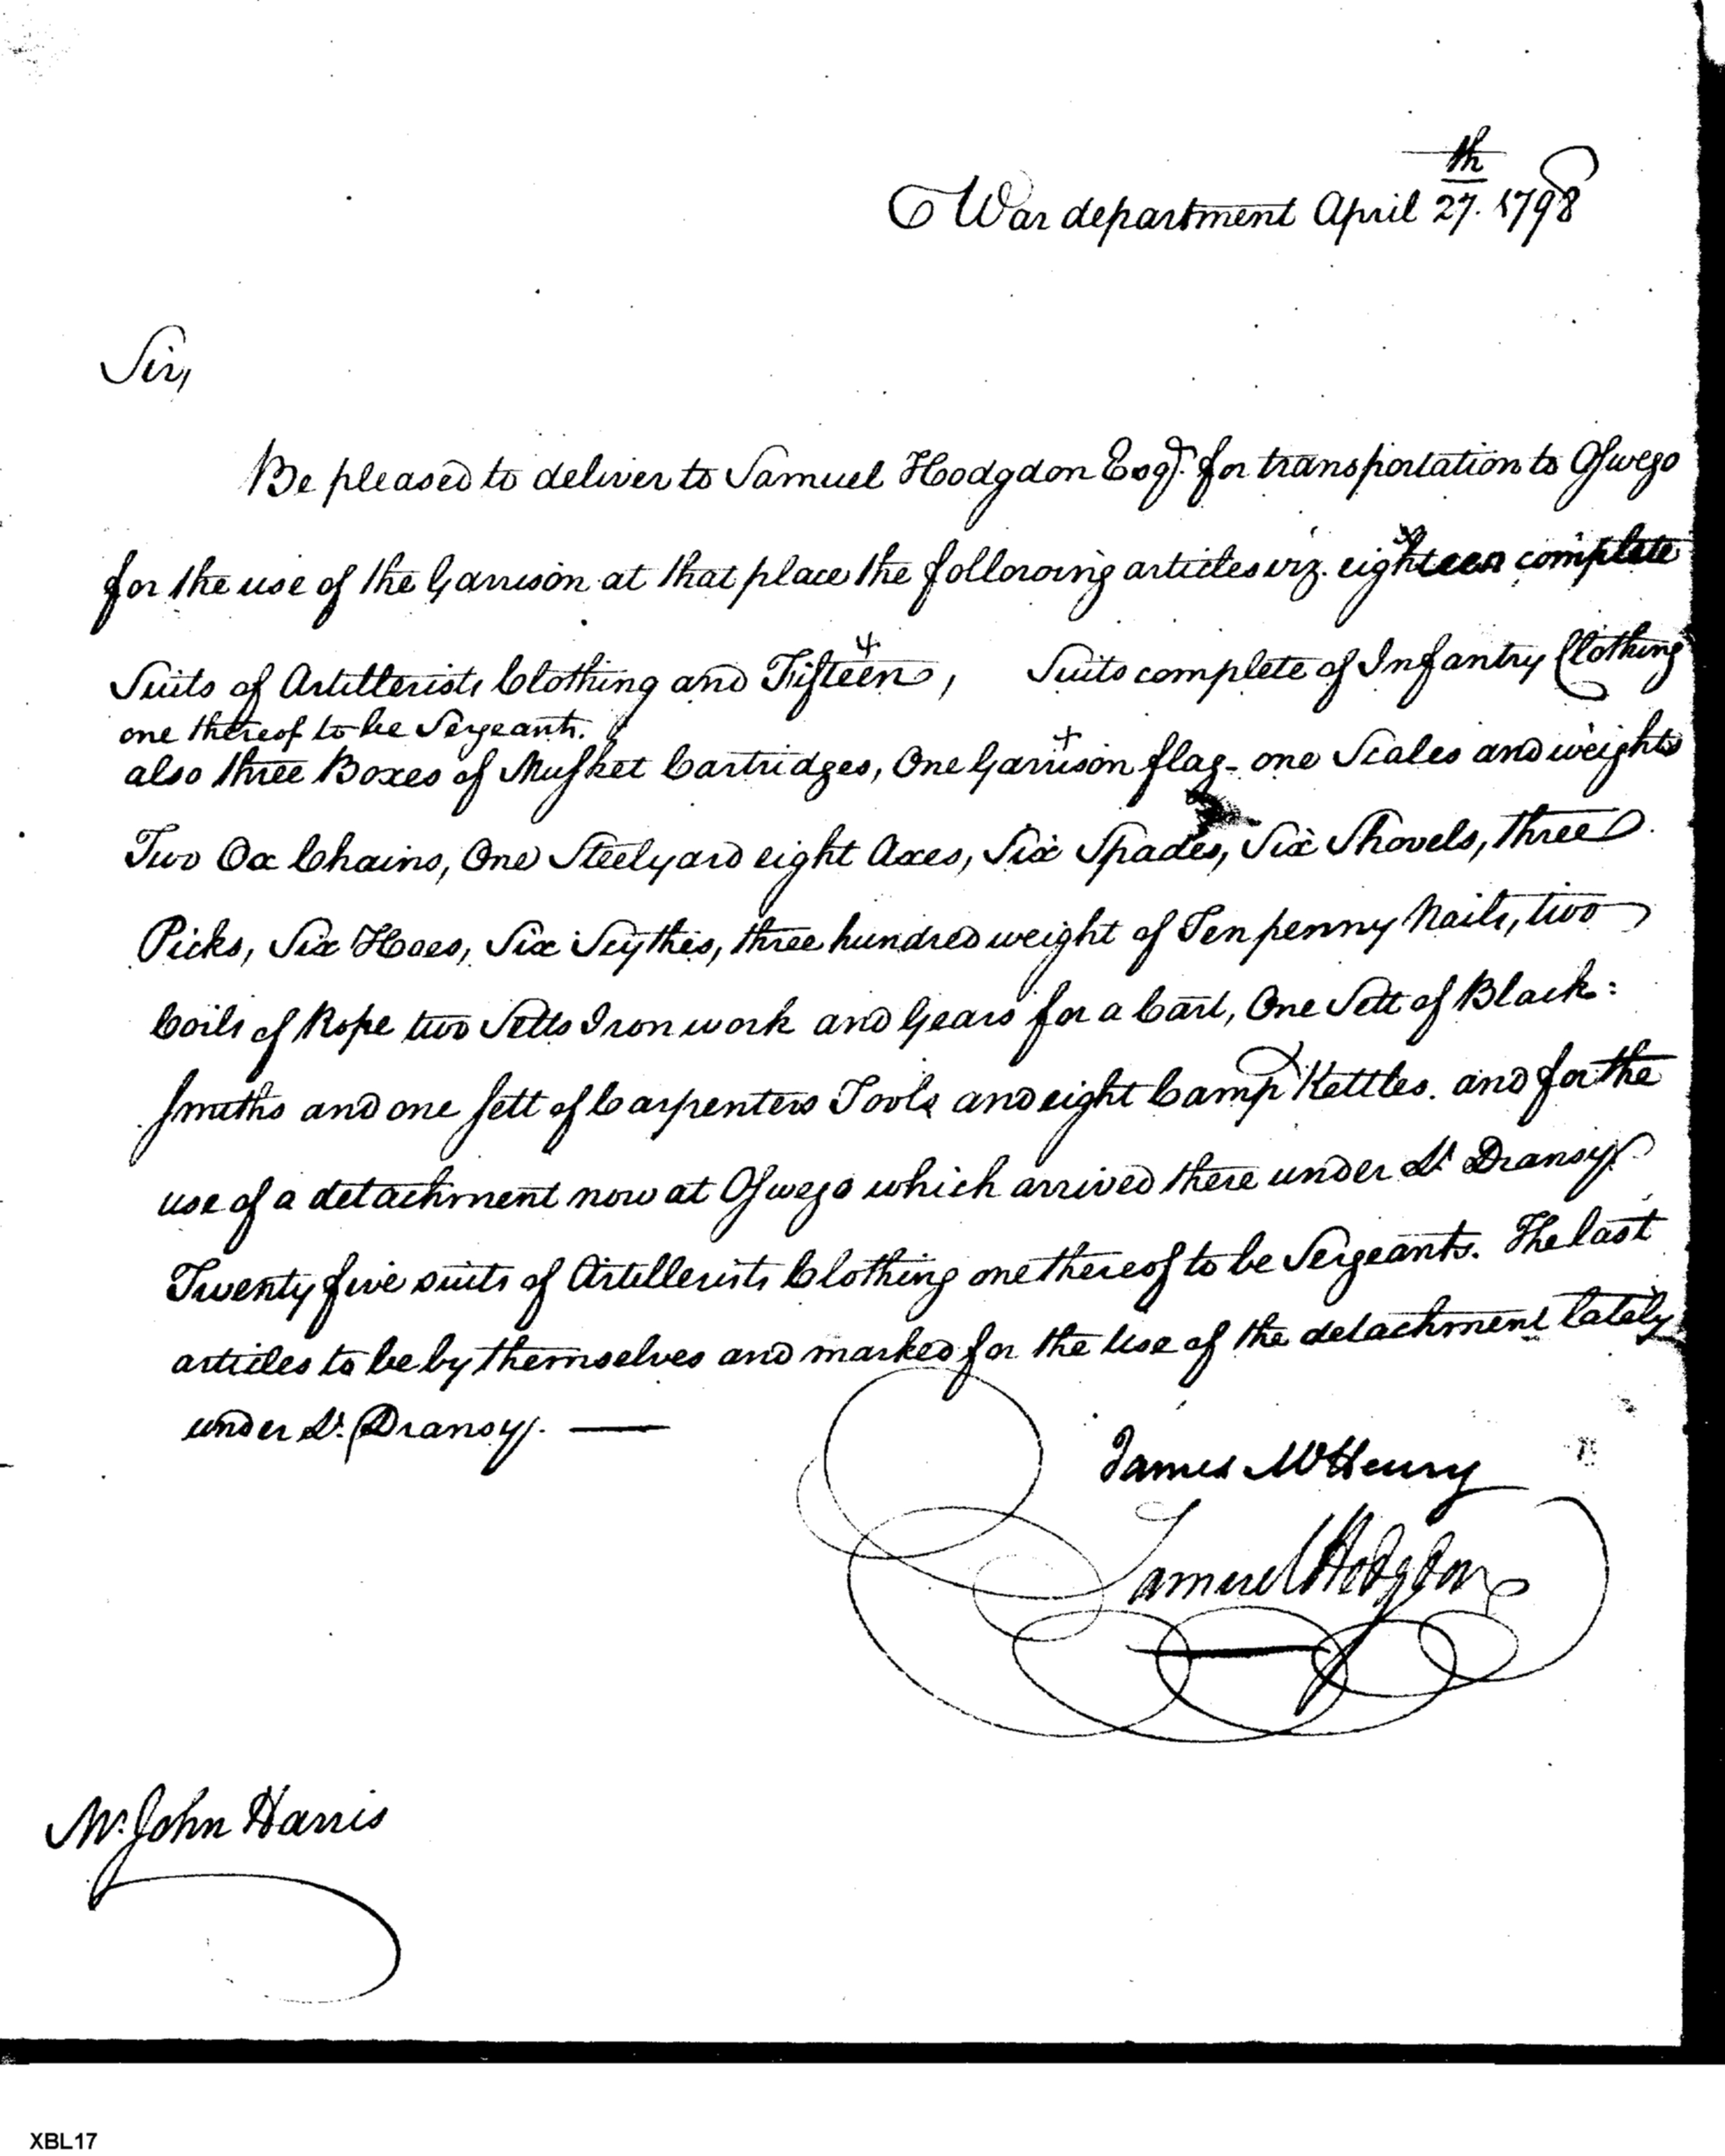 War department April 27.th 1798
Sir,
Be pleased to deliver to Samuel Hodgdon Esqr. for transportation to Oswego
for the use of the Garrison at that place the following articles viz. eighteen complete
Suits of Artillerists Clothing and Fifteen, Suits complete of Infantry Clothing
one thereof to be Sergeants.
also three Boxes of Musket Cartridges, One Garrison flag - one Scales and weights
Two Ox Chains, One Steelyard eight Axes, Six Spades, Six Shovels, three
Picks, Six Hoes, Six Scythes, three hundred weight of Tenpenny Nails, two
Coils of Rope two Setts Iron work and Gears for a Cart, One Sett of Black:
smiths and one sett of Carpenters Tools and eight Camp Kettles. and for the
use of a detachment now at Oswego which arrived there under Lt Dransy.
Twenty five suits of Artillerists Clothing one thereof to be Sergeants. The last
articles to be by themselves and marked for the Use of the detachment lately
under Lt. Dransy. —
James McHenry
Samuel Hodgdon
Mr. John Harris
XBL17